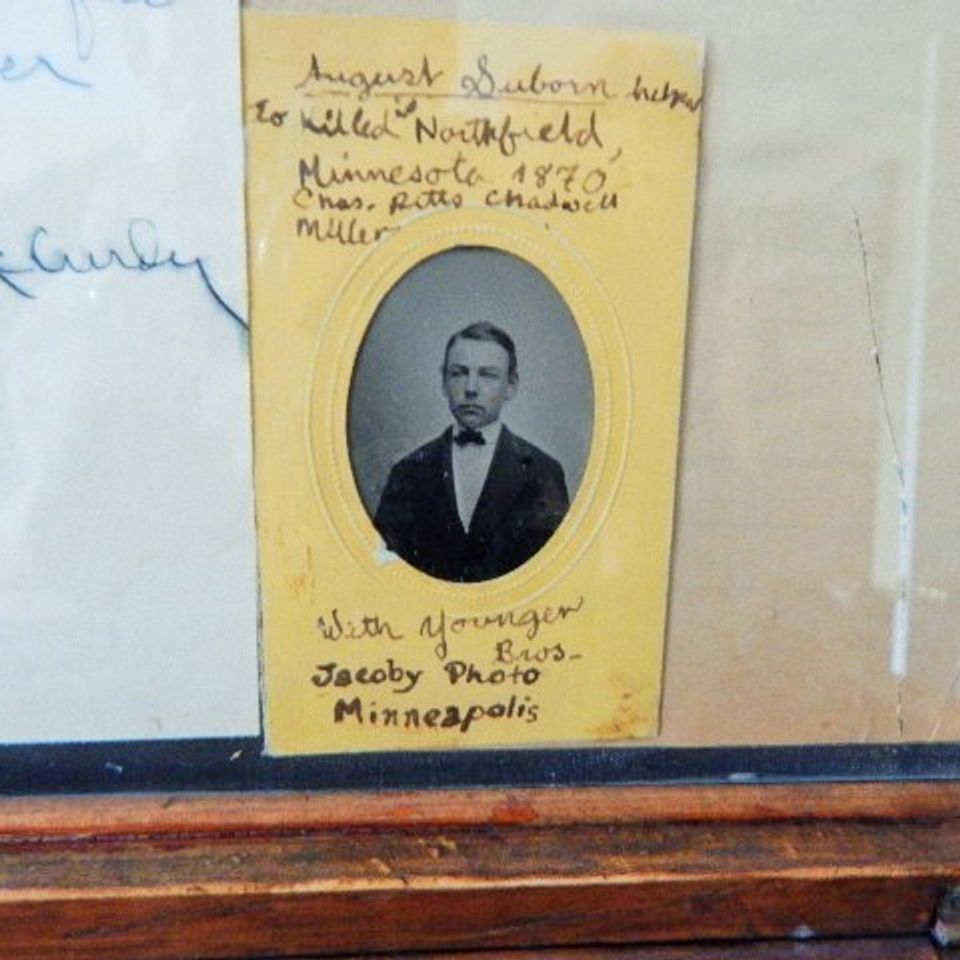 er
Curdy
August Suborn helped
to Killed in Northfield,
Minnesota 1870
Chas. Pitts Chadwell
Miller
With Younger
Bros-
Jacoby Photo
Minneapolis